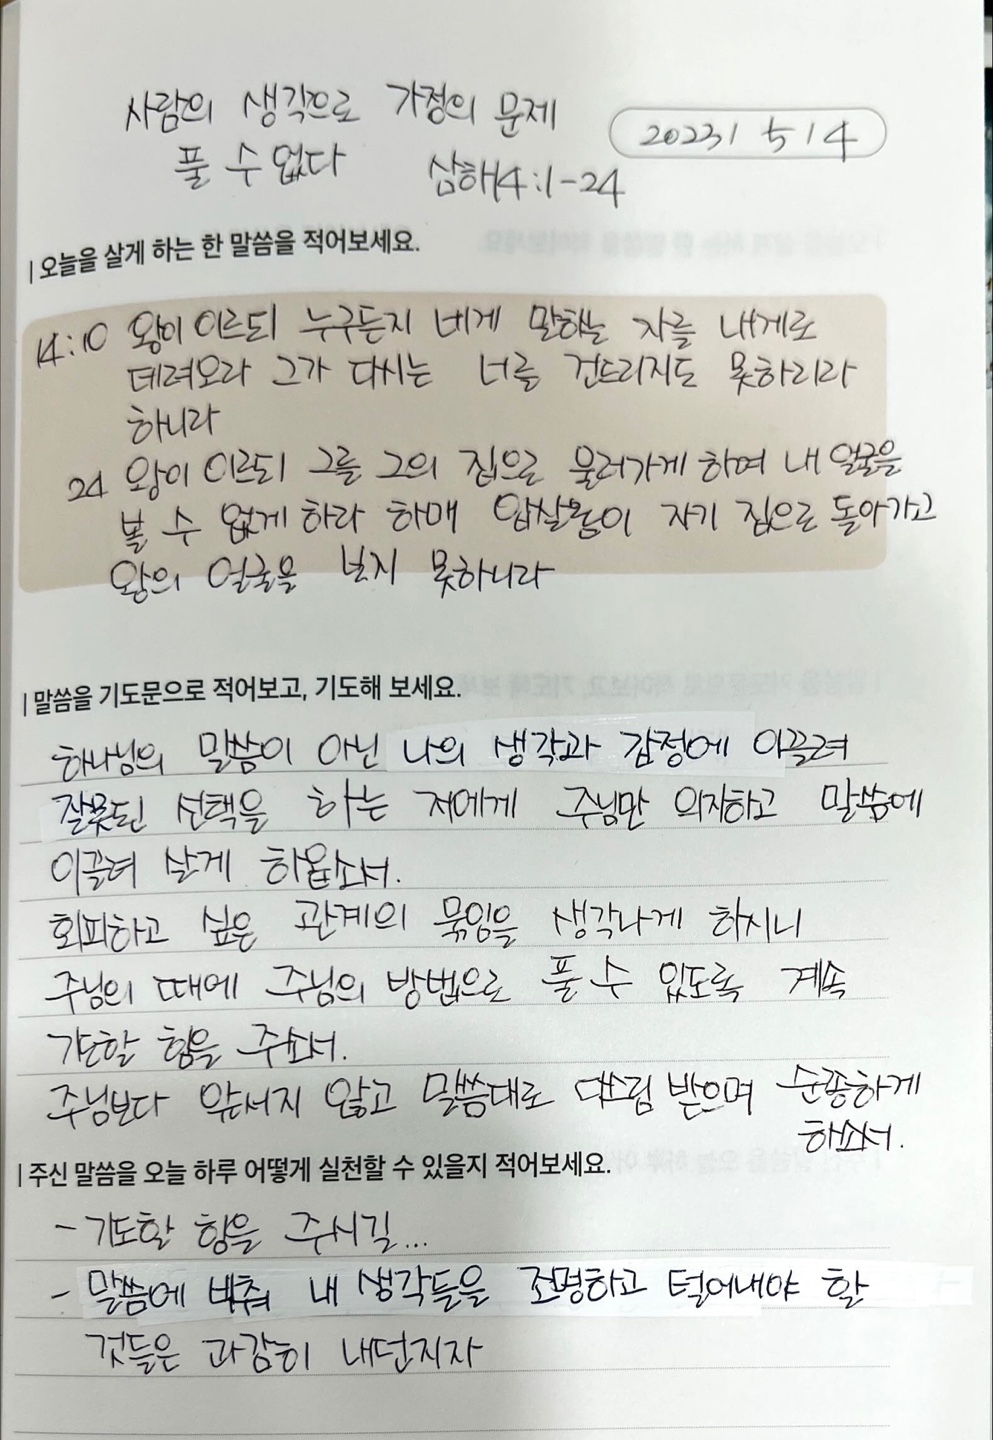 사람의 생각으로 가정의 문제
풀 수 없다 삼하14:1-24
2023 / 5 / 4
| 오늘을 살게 하는 한 말씀을 적어보세요.
14:10 왕이 이르되 누구든지 네게 말하는 자를 내게로
데려오라 그가 다시는 너를 건드리지도 못하리라
하니라
24 왕이 이르되 그를 그의 집으로 물러가게 하여 내 얼굴을
볼 수 없게 하라 하매 압살롬이 자기 집으로 돌아가고
왕의 얼굴을 보지 못하니라
| 말씀을 기도문으로 적어보고, 기도해 보세요.
하나님의 말씀이 아닌 나의 생각과 감정에 이끌려
잘못된 선택을 하는 저에게 주님만 의지하고 말씀에
이끌려 살게 하옵소서.
회피하고 싶은 관계의 묶임을 생각나게 하시니
주님의 때에 주님의 방법으로 풀 수 있도록 계속
간구할 힘을 주소서.
주님보다 앞서지 않고 말씀대로 다스림 받으며 순종하게
하소서.
| 주신 말씀을 오늘 하루 어떻게 실천할 수 있을지 적어보세요.
- 기도할 힘을 주시길...
- 말씀에 비춰 내 생각들을 조명하고 털어내야 할
것들은 과감히 내던지자